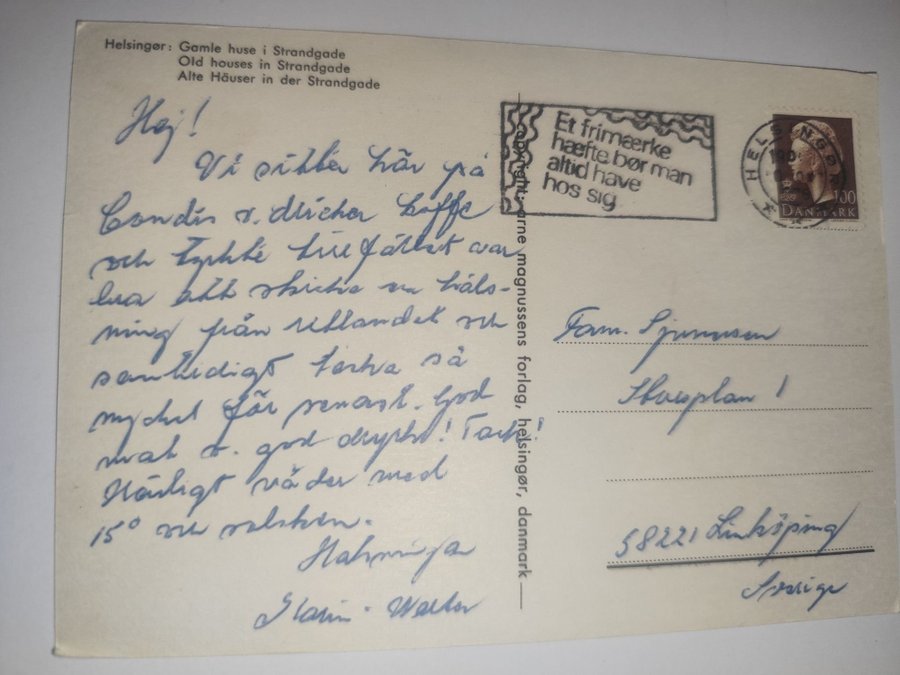 Helsingør: Gamle huse i Strandgade
Old houses in Strandgade
Alte Häuser in der Strandgade
Hej!
Vi sitter här på
Condis o. dricker kaffe
och tyckte tillfället var
bra att skicka en häls-
ning från utlandet och
samtidigt tacka så
mycket för senast. God
mat o. god dryck! Tack!
Härligt väder med
15° och solsken.
Hälsningar
Karin - Walter
copyright: arne magnussens forlag, helsingør, danmark
Et frimærke
hæfte bør man
altid have
hos sig
HELSINGØR
100
DANMARK
Fam.
1
58221 Linköping
Sverige